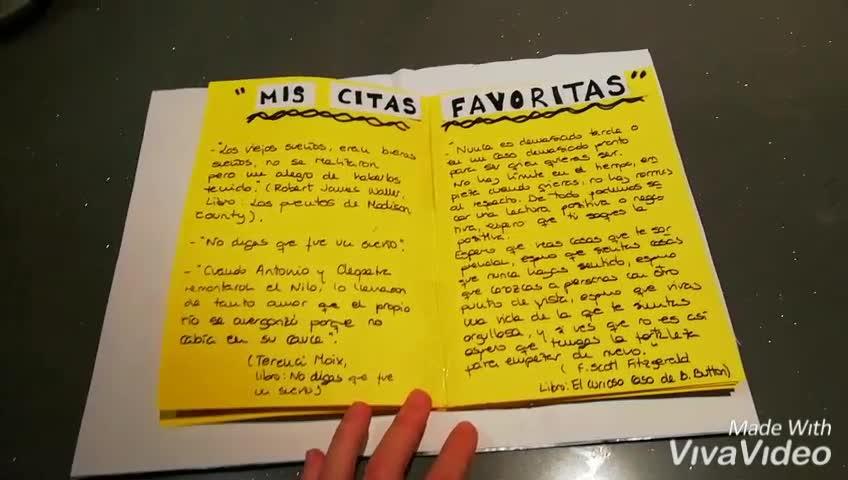 "MIS CITAS FAVORITAS"
- "Los viejos sueños, eran buenos
sueños, no se realizaron
pero me alegro de haberlos
tenido." (Robert James Waller,
Libro: Los puentes de Madison
County).
- "No digas que fue un sueño".
- "Cuando Antonio y Cleopatra
remontaron el Nilo, lo llenaron
de tanto amor que el propio
río se avergonzó porque no
cabía en su cauce".
(Terenci Moix,
libro: No digas que fue
un sueño)
- "Nunca es demasiado tarde o
en mi caso demasiado pronto
para ser quien quieras ser.
No hay límite en el tiempo, em
pieza cuando quieras, no hay normas
al respecto. De todo podemos sa
car una lectura positiva o nega
tiva, espero que tú saques la
positiva.
Espero que veas cosas que te sor
prendan, espero que sientas cosas
que nunca hayas sentido, espero
que conozcas a personas con otro
punto de vista, espero que vivas
una vida de la que te sientas
orgullosa, y si ves que no es así
espero que tengas la fortaleza
para empezar de nuevo."
(F. Scott Fitzgerald
Libro: El curioso caso de B. Button)
Made With
VivaVideo